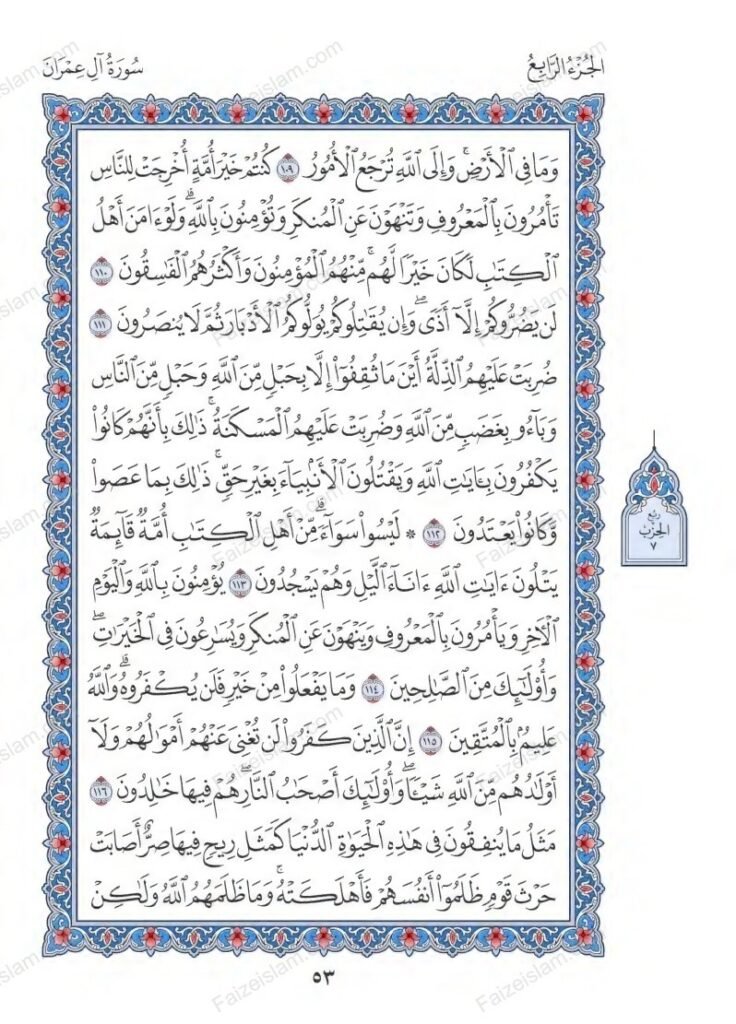 الجُزْءُ الرَّابِعُ
سُورَةُ آلِ عِمْرَانَ
وَمَا فِي ٱلْأَرْضِۚ وَإِلَى ٱللَّهِ تُرْجَعُ ٱلْأُمُورُ ١٠٩ كُنتُمْ خَيْرَ أُمَّةٍ أُخْرِجَتْ لِلنَّاسِ
تَأْمُرُونَ بِٱلْمَعْرُوفِ وَتَنْهَوْنَ عَنِ ٱلْمُنكَرِ وَتُؤْمِنُونَ بِٱللَّهِۗ وَلَوْ ءَامَنَ أَهْلُ
ٱلْكِتَٰبِ لَكَانَ خَيْرًا لَّهُمۚ مِّنْهُمُ ٱلْمُؤْمِنُونَ وَأَكْثَرُهُمُ ٱلْفَٰسِقُونَ ١١٠
لَن يَضُرُّوكُمْ إِلَّآ أَذًىۖ وَإِن يُقَٰتِلُوكُمْ يُوَلُّوكُمُ ٱلْأَدْبَارَ ثُمَّ لَا يُنصَرُونَ ١١١
ضُرِبَتْ عَلَيْهِمُ ٱلذِّلَّةُ أَيْنَ مَا ثُقِفُوٓاْ إِلَّا بِحَبْلٍ مِّنَ ٱللَّهِ وَحَبْلٍ مِّنَ ٱلنَّاسِ
وَبَآءُو بِغَضَبٍ مِّنَ ٱللَّهِ وَضُرِبَتْ عَلَيْهِمُ ٱلْمَسْكَنَةُۚ ذَٰلِكَ بِأَنَّهُمْ كَانُواْ
يَكْفُرُونَ بِـَٔايَٰتِ ٱللَّهِ وَيَقْتُلُونَ ٱلْأَنۢبِيَآءَ بِغَيْرِ حَقٍّۚ ذَٰلِكَ بِمَا عَصَواْ
وَّكَانُواْ يَعْتَدُونَ ١١٢ * لَيْسُواْ سَوَآءًۗ مِّنْ أَهْلِ ٱلْكِتَٰبِ أُمَّةٌ قَآئِمَةٌ
يَتْلُونَ ءَايَٰتِ ٱللَّهِ ءَانَآءَ ٱلَّيْلِ وَهُمْ يَسْجُدُونَ ١١٣ يُؤْمِنُونَ بِٱللَّهِ وَٱلْيَوْمِ
ٱلْأٓخِرِ وَيَأْمُرُونَ بِٱلْمَعْرُوفِ وَيَنْهَوْنَ عَنِ ٱلْمُنكَرِ وَيُسَٰرِعُونَ فِي ٱلْخَيْرَٰتِۖ
وَأُوْلَٰٓئِكَ مِنَ ٱلصَّٰلِحِينَ ١١٤ وَمَا يَفْعَلُواْ مِنْ خَيْرٍ فَلَن يُكْفَرُوهُۗ وَٱللَّهُ
عَلِيمٌۢ بِٱلْمُتَّقِينَ ١١٥ إِنَّ ٱلَّذِينَ كَفَرُواْ لَن تُغْنِيَ عَنْهُمْ أَمْوَٰلُهُمْ وَلَآ
أَوْلَٰدُهُم مِّنَ ٱللَّهِ شَيْـًٔاۖ وَأُوْلَٰٓئِكَ أَصْحَٰبُ ٱلنَّارِۖ هُمْ فِيهَا خَٰلِدُونَ ١١٦
مَثَلُ مَا يُنفِقُونَ فِي هَٰذِهِ ٱلْحَيَوٰةِ ٱلدُّنْيَا كَمَثَلِ رِيحٍ فِيهَا صِرٌّ أَصَابَتْ
حَرْثَ قَوْمٍ ظَلَمُوٓاْ أَنفُسَهُمْ فَأَهْلَكَتْهُۚ وَمَا ظَلَمَهُمُ ٱللَّهُ وَلَٰكِنْ
ربع
الحزب
٧
٥٣
Faizeislam.com